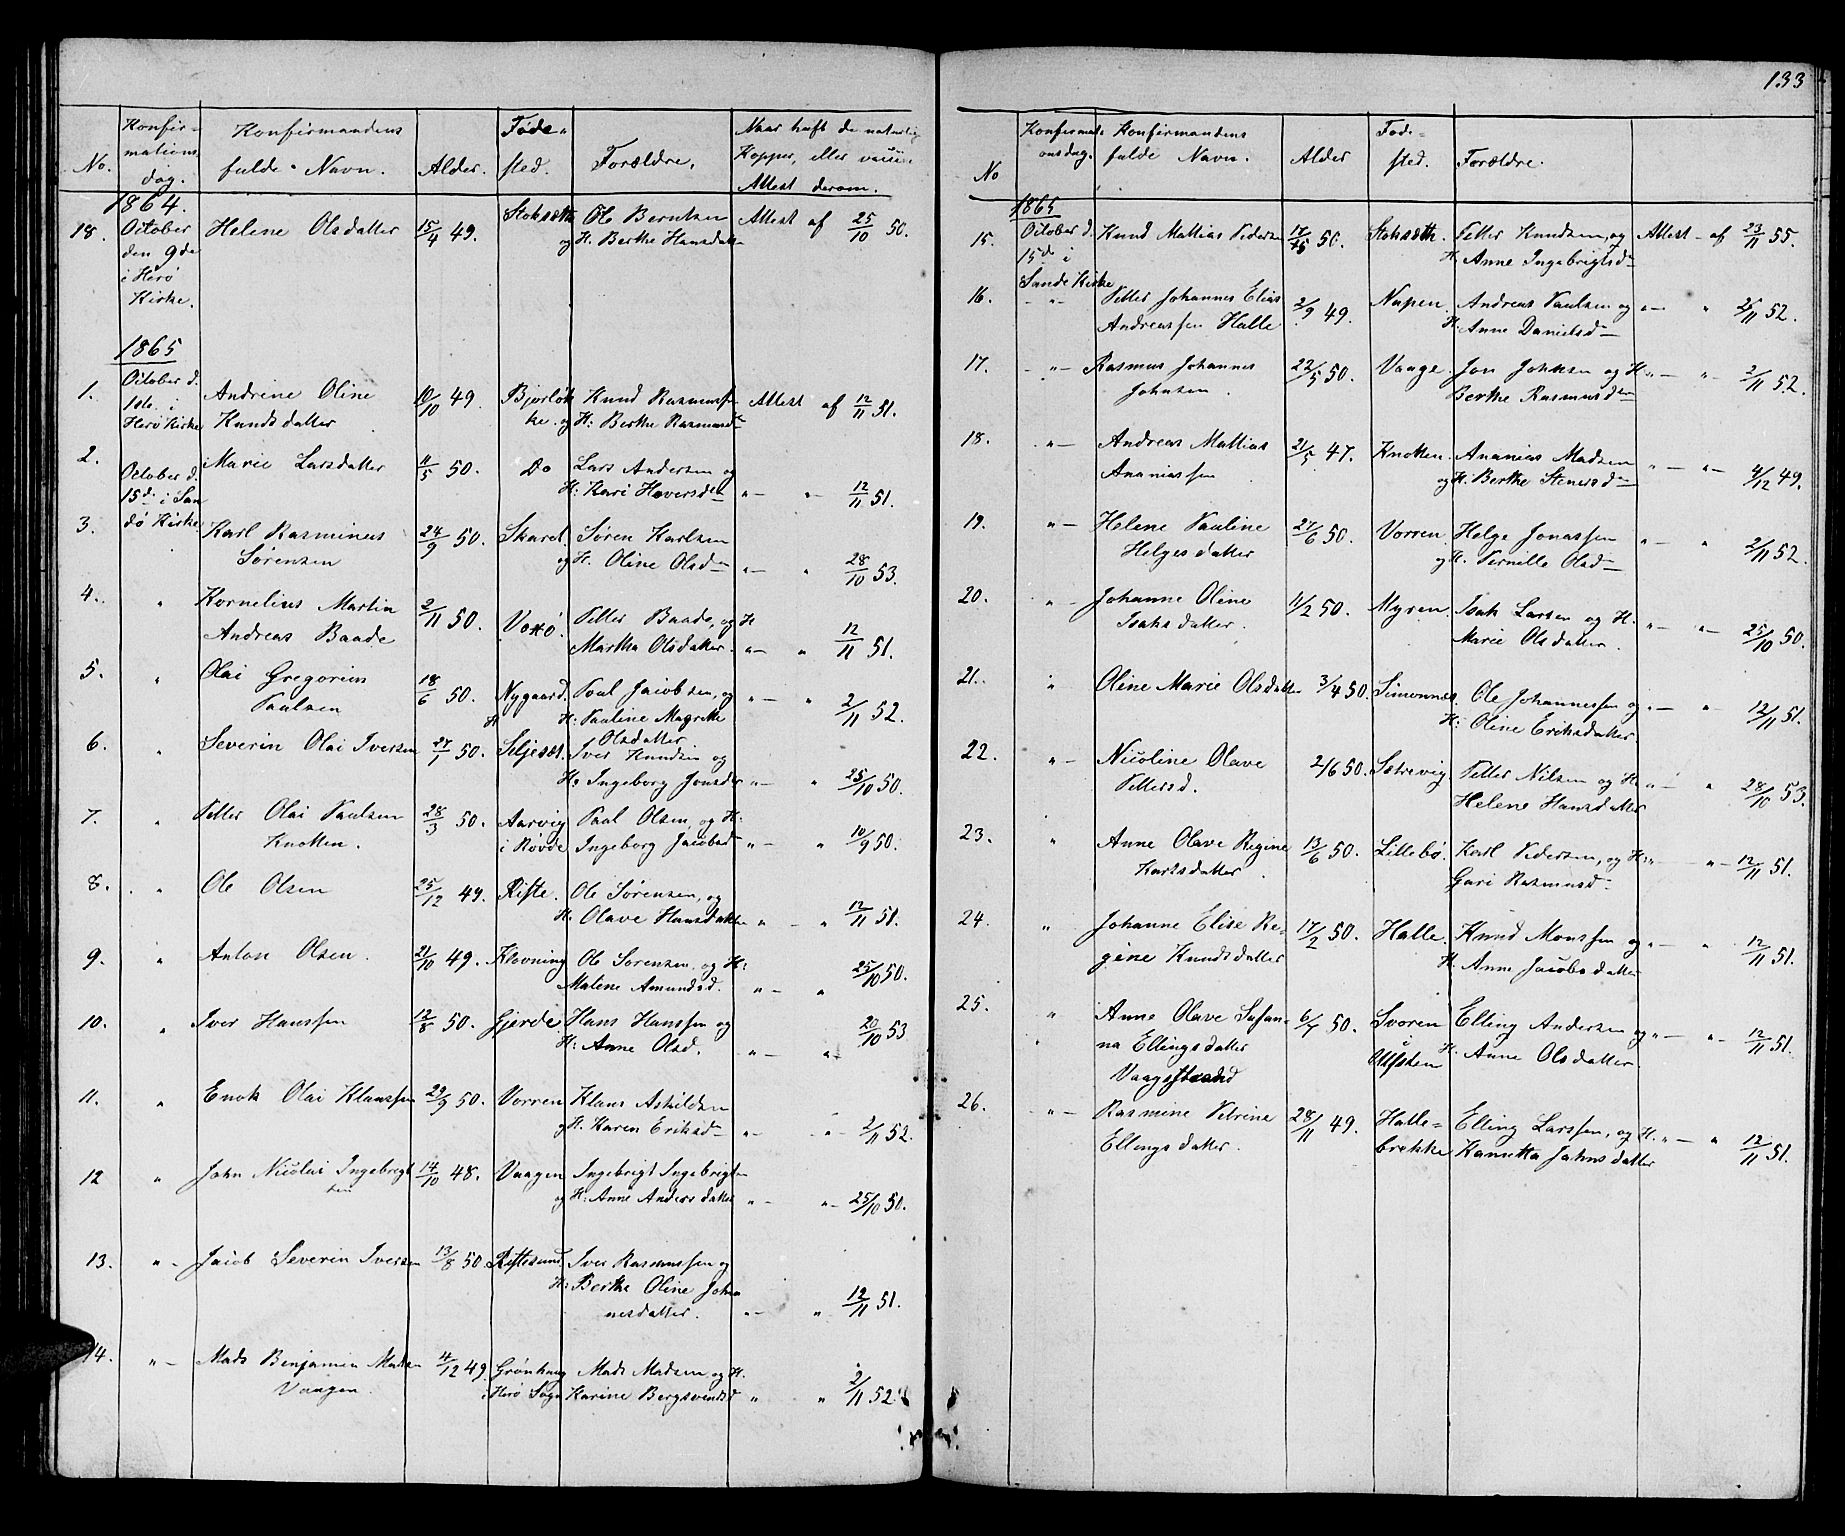 133
Konfir- Konfirmandens Føde- Naar haft de naturlig
mations Kopper, eller vaccin
No. dag. fulde Navn. Alder. sted. Forældre. Attest derom.
1864.
18. October Helene Olsdatter 15/4 49. Stoksæth Ole Berntsen Attest af 25/10 50.
den 9de og H. Berthe Hansdatter
i Herø
Kirke.
1865
1. October d. Andrine Oline 10/10 49. Bjørlok Knud Rasmussen Attest af 12/11 51.
1ste i Knudsdatter ke. og H: Berthe Rasmusd
Herø Kirke
2. October d. Marie Larsdatter 11/5 50. Do Lars Andersen og
15de i San H: Kari Haversd " — " — 12/11 51.
dø Kirke
3. Karl Rasminus 24/9 50. Skaret. Søren Karlsen
Sørensen og H. Oline Olsd " — " 28/10 53.
4. " Kornelius Martin 2/11 50. Voxø. Petter Baade, og H
Andreas Baade Martha Olsdatter. " — " 12/11 51.
5. " Olai Gregorius 18/6 50. Nygaard. Paul Jacobsen, og " — " 2/11 52.
Paulsen H: Pauline Magrethe
Olsdatter
6. " Severin Olai Iversen 27/1 50. Seljeset. Iver Knudsen og
H: Ingeborg Jonsdtr " — " 25/10 50.
7. " Petter Olai Paulsen 28/3 50. Aarvig Paul Olsen, og H:
Knotten. i Røvde Ingeborg Jacobsd " — " 10/9 50.
8. " Ole Olsen 25/12 49. Riste. Ole Sørensen, og
H: Olave Hansdatter " — " 12/11 51.
9. " Anton Olsen. 21/10 49. Klovning Ole Sørensen, og H:
Malene Amundsd. " — " 25/10 50.
10. " Iver Hanssen 12/8 50. Gjerde. Hans Hanssen og
H: Anne Olsd. " — " 20/10 53
11. " Enok Olai Klaussen 29/9 50. Vorren Klaus Askildsen
og H. Karen Eriksd " — " — 2/11 52.
12 " John Nicolai Ingebrigt 14/10 48. Vaagen Ingebrigt Ingebrigtsen
sen og H: Anne Andersdatter " — " — 25/10 50.
13. " — Jacob Severin Iversen 13/8 50. Ristesund. Iver Rasmussen og
H: Berthe Oline Joha
nesdatter. " — " 12/11 51.
14. " — Mads Benjamin Madsen 4/12 49 Grønhaug Mads Madsen og H.
Vaagen. Herø Sogn Karine Bergsvendsd " " 2/11 52.
Konfirmati- Konfirmandens Føde-
No onsdag. fulde Navn. Alder sted. Forældre.
1865
15. October d. Knud Mathias Pedersen 50. Stoksæth. Petter Knudsen, og Attest — af 23/11 55.
15de i H. Anne Ingebrigtsd
Sande Kirke
16. — " — Petter Johannes Elias 2/9 49. Napen. Andreas Paulsen og " — " 26/11 52.
Andreassen Halle H: Anne Danielsd
17. — " — Rasmus Johannes 22/5 50. Vaage. Jon Johnsen og H: " — " 2/11 52.
Johnsen. Berthe Rasmusd
18. " — Andreas Mathias 21/5 47. Knotten. Ananias Madsen
Ananiassen og H: Berthe Stenersd " — " — 4/12 49.
19. " — Helene Pauline 27/6 50. Vorren. Helge Jonassen
Helgesdatter og H. Pernille Olsd " — " 2/11 52.
20. " — Johanne Oline 11/2 50. Myren. Isak Larsen og H.
Isaksdatter. Marie Olsdatter. " — " — 25/10 50.
21. " Oline Marie Olsdatter 3/4 50. Simonnes. Ole Johannessen og " — " 12/11 51.
H: Oline Eriksdatter.
22. " — Nicoline Olave 2/6 50. Sætrevig Petter Nilsen og H: " — " 28/10 53.
Pettersd. Helene Hansdatter
23. " Anne Olave Regine 13/6 50. Lillebø. Karl Pedersen, og H: " — " — 12/11 51.
Karlsdatter. Guri Rasmusd
24. " Johanne Elise Re- 17/2 50. Halle. Knud Monssen og " — " 12/11 51.
gine Knudsdatter H. Anne Jacobsdatter
25. " Anne Olave Susan- 6/7 50. Svoren Elling Andersen og " — " — 12/11 51.
na Ellingsdatter i H. Anne Olsdatter.
Vaagstrand Ulfsten
26. " — Rasmine Petrine 28/11 49. Halle- Elling Larssen, og H. " — " 12/11 51.
Ellingsdatter. brekke Hansetta Johnsdatter